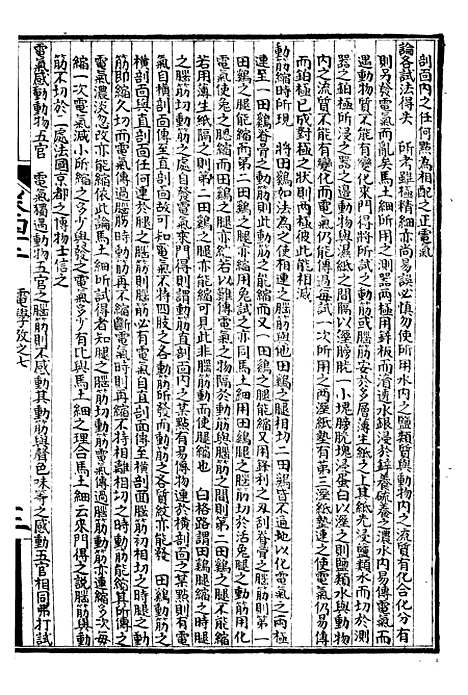 剖面內之任何點為相配之正電氣
論各試法得失　所考雖極精細亦尚易誤必慎勿使所用水內之鹽類質與動物內之流質有化合化分有
則另發電氣而亂矣馬土細所用之測器兩極用鋅板而滑透水銀浸於鋅養硫養之濃水內易傳電氣而
遇動物質不能有變化來門得將所試之動筋或腦筋安於多層薄生紙之上其紙先浸鹽類水而切於測
器之鉑極所浸之器之邊動物與濕紙之間隔以溼膀胱一小塊膀胱塊浸蛋白以溼之則鹽類水與動物
內之流質不能有變化而電氣仍能傳過每試一次所用之兩溼紙墊有第三溼紙墊連之使電氣仍易傳
而鉑極已成對極之狀則兩極彼此能相滅
動筋縮時所現　將田鷄如法為之使相連之腦筋與他田鷄之腿相切二田鷄皆不遍地以化電氣之兩極
連至一田鷄脊骨之動筋則此動筋能縮而第二田鷄之腿亦能縮又用鋒利之刃刮脊骨之腦筋則第二
田鷄之腿亦能縮馬土細用兔試之亦同馬土細用田鷄腿之腦筋切於活兔腿之動筋用化
電氣使兔之腿縮而田鷄之腿亦縮若以難傳電氣之物隔於動筋與腦筋之間則第二田鷄之腿不能縮
若用薄生紙隔之則第二田鷄之腿亦能縮可見此非腦筋動而使腿縮也　白格路謂田鷄腿縮之時腿
之腦筋切於動筋之處自發電氣來門得則謂動筋直剖面內之某點有易傳物連於橫剖面之某點則有電
氣自橫剖面傳至直剖面故可知電氣不持四肢之各動筋所發而動筋之各質紋亦能發　田鷄腿之動筋
橫剖面與直剖面任何連於腿之腦筋則腦筋必有電氣自直剖面傳至橫剖面腦筋初相切之時腿之動
筋即縮久切而電氣傳過腦筋時動筋再不縮斷電氣時則再縮不持相離相切之時動筋能縮其所傳之
電氣濃淡忽改亦能縮依此論馬土細所試得者知腿之腦筋切動筋電氣傳過腦筋時動筋連縮多次每
縮一次電氣減小所縮之多少與發之電氣多少有比與馬土細之理合馬土細云來門得之說腦筋與動
筋不切於一處法國京都之博物士信之
電氣感動動物五官　電氣獨遇動物五官之腦筋則不感動其動筋與聲色味等之感動五官相同弗打試
電學攷之七